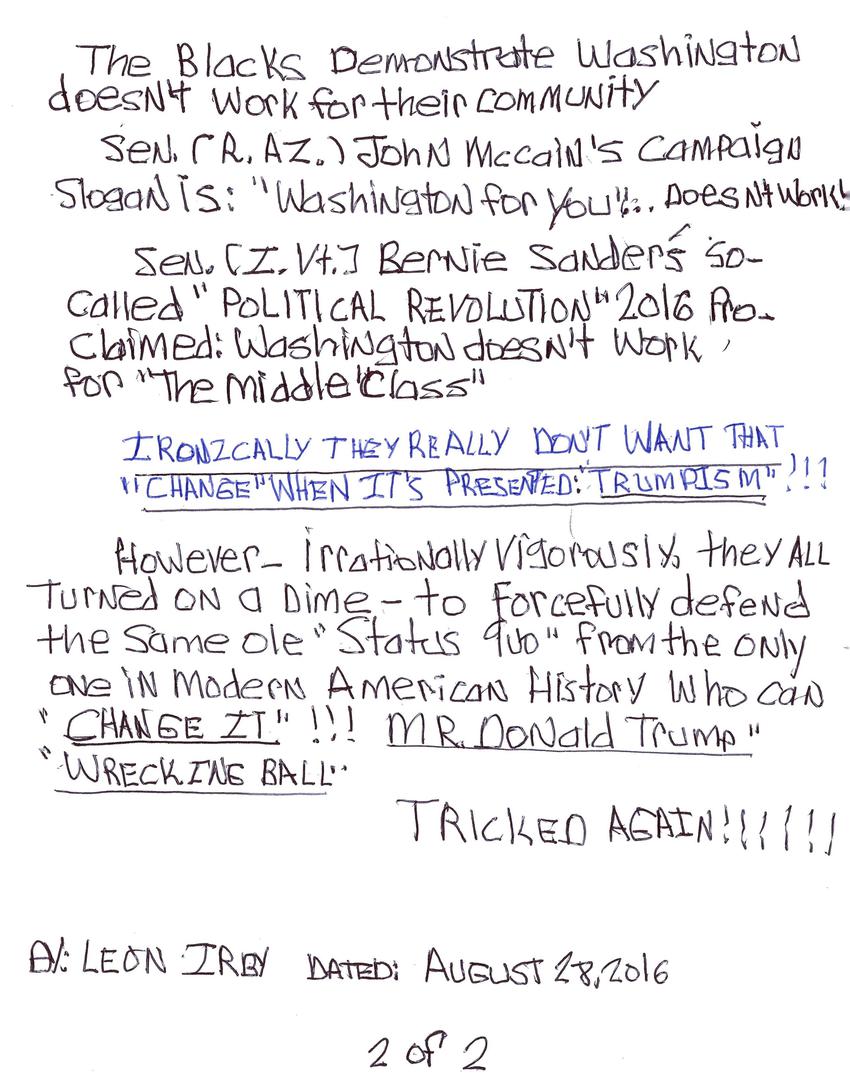 The Blacks Demonstrate Washington
doesn't work for their community
Sen. (R. AZ.) John McCain's Campaign
Slogan is: "Washington for you"... Doesn't Work!
Sen. [I. Vt.] Bernie Sander's so-
called "POLITICAL REVOLUTION" 2016 Pro-
claimed: Washington doesn't work
for "The middle "Class"
IRONICALLY THEY REALLY DON'T WANT THAT
"CHANGE" WHEN IT'S PRESENTED: "TRUMPISM"!!!
However- irrationally vigorously, they ALL
Turned on a Dime - to forcefully defend
the same ole "Status quo" from the only
one in Modern American History who can
"CHANGE IT" !!! MR. Donald Trump"
"WRECKING BALL"
TRICKED AGAIN!!!!!!!
BY: LEON IRBY DATED: AUGUST 28, 2016
2 of 2